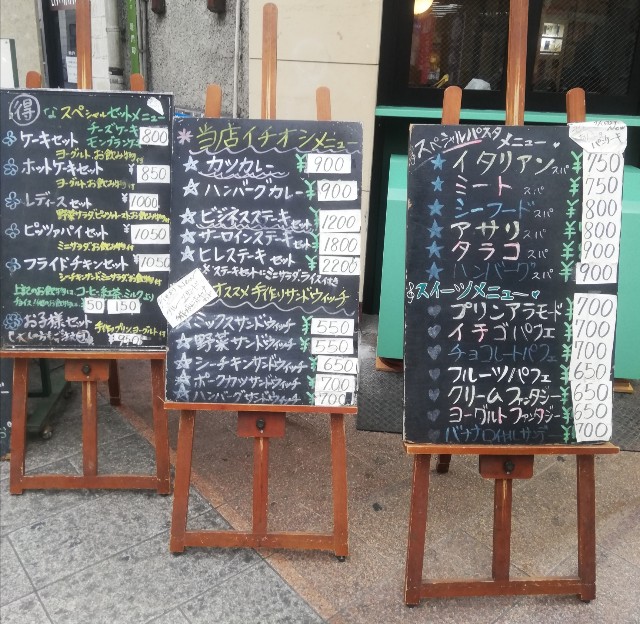 得なスペシャルセットメニュー
ケーキセット チーズケーキ モンブランケーキ 800
ヨーグルト、お飲み物付
ホットケーキセット ¥850
ヨーグルト お飲み物付
レディースセット ¥1000
野菜サラダ、
ピッツァパイセット ¥1050
ミニサラダ、お飲み物付
フライドチキンセット ¥1050
シーチキンサンド、ミニサラダ、お飲み物付
上記のお飲み物は コーヒー、紅茶、ミルクより
50 150
お子様セット 手作りプリン、ヨーグルト付
¥950
当店イチオシメニュー
カツカレー ¥900
ハンバーグカレー ¥900
ビジネスステーキセット 1200
サーロインステーキセット 1800
ヒレステーキセット 2200
ステーキセットにミニサラダ、ライス付き
オススメ手作りサンドウィッチ
ミックスサンドウィッチ ¥550
野菜サンドウィッチ ¥550
シーチキンサンドウィッチ 650
ポークカツサンドウィッチ 700
ハンバーグサンドウィッチ 700
スペシャルパスタメニュー
イタリアンスパ ¥750
ミートスパ ¥750
シーフードスパ ¥800
アサリスパ ¥800
タラコスパ ¥900
ハンバーグスパ ¥900
スイーツメニュー
プリンアラモード ¥700
イチゴパフェ ¥700
チョコレートパフェ ¥700
フルーツパフェ ¥650
クリームファンタジー ¥650
ヨーグルトファンタジー ¥650
バナナロイヤルサンデー ¥700